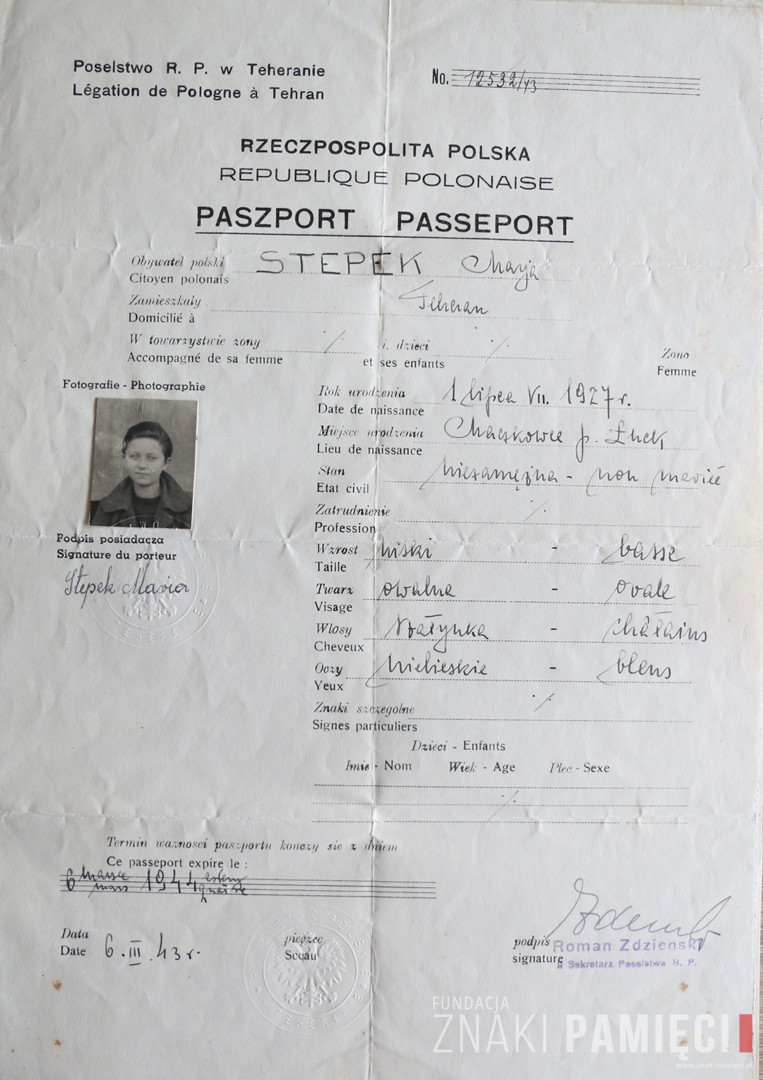 Poselstwo R. P. w Teheranie
Légation de Pologne à Tehran
No. 12532/43
RZECZPOSPOLITA POLSKA
REPUBLIQUE POLONAISE
PASZPORT PASSEPORT
Obywatel polski STEPEK Marja
Citoyen polonais
Zamieszkały Teheran
Domicilié à
W towarzystwie żony ·/· i dzieci ·/· Żona
Accompagné de sa femme et ses enfants Femme
Fotografie - Photographie
Rok urodzenia 1 lipca VII. 1927 r.
Date de naissance
Miejsce urodzenia Maczkowce p. Łuck
Lieu de naissance
Stan niezamężna - non
Etat civil
Zatrudnienie ·/·
Profession
Podpis posiadacza
Signature du porteur
Stepek Maria
Wzrost niski - basse
Taille
Twarz owalna - ovale
Visage
Włosy szatynka - châtains
Cheveux
Oczy niebieskie - bleus
Yeux
Znaki szczegolne ·/·
Signes particuliers
Dzieci - Enfants
Imie - Nom Wiek - Age Plec - Sexe
·/·
Termin wazności paszportu konczy sie z dniem
Ce passeport expire le :
6 marca 1944
mars
Data
Date 6. III. 43 r.
pieczec
Sceau
podpis
signature
Roman Zdzienski
Sekretarz Poselstwa R. P.
FUNDACJA
ZNAKI PAMIĘCI
www.znakipamieci.pl